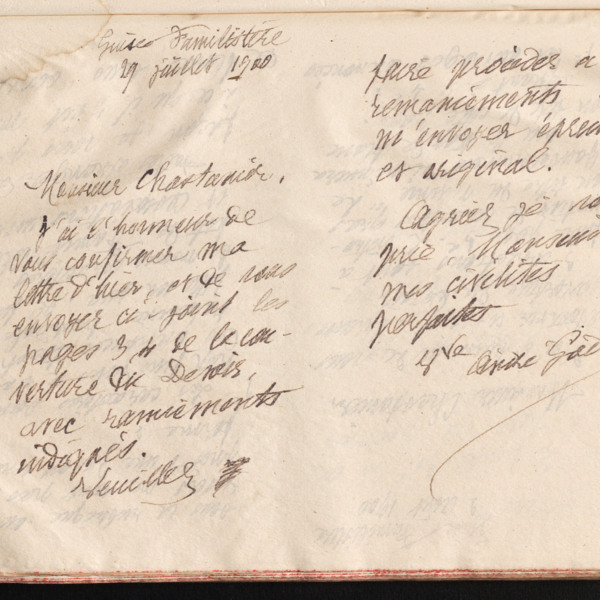 Guise Familistère
29 juillet 1900
Monsieur Chastanier,
J'ai l'honneur de
vous confirmer ma
lettre d'hier, et de vous
envoyer ci-joint les
pages 3 4 de la cou-
verture du Devoir,
avec remaniements
indiqués.
Veuillez
faire procéder à
remaniements
m'envoyer épreu
et original.
Agréez je vo
prie, Monsieur
mes civilités
parfaites
Vve